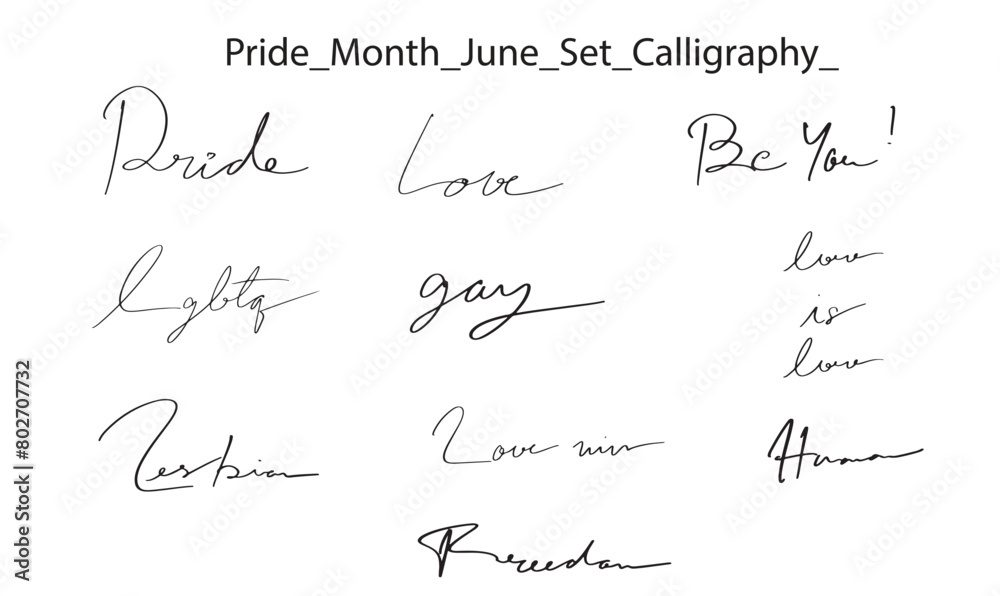 Pride_Month_June_Set_Calligraphy_
Pride
Love
Be You!
lgbtq
gay
love
is
love
Lesbian
Love win
Human
Freedom
Adobe Stock | #802707732